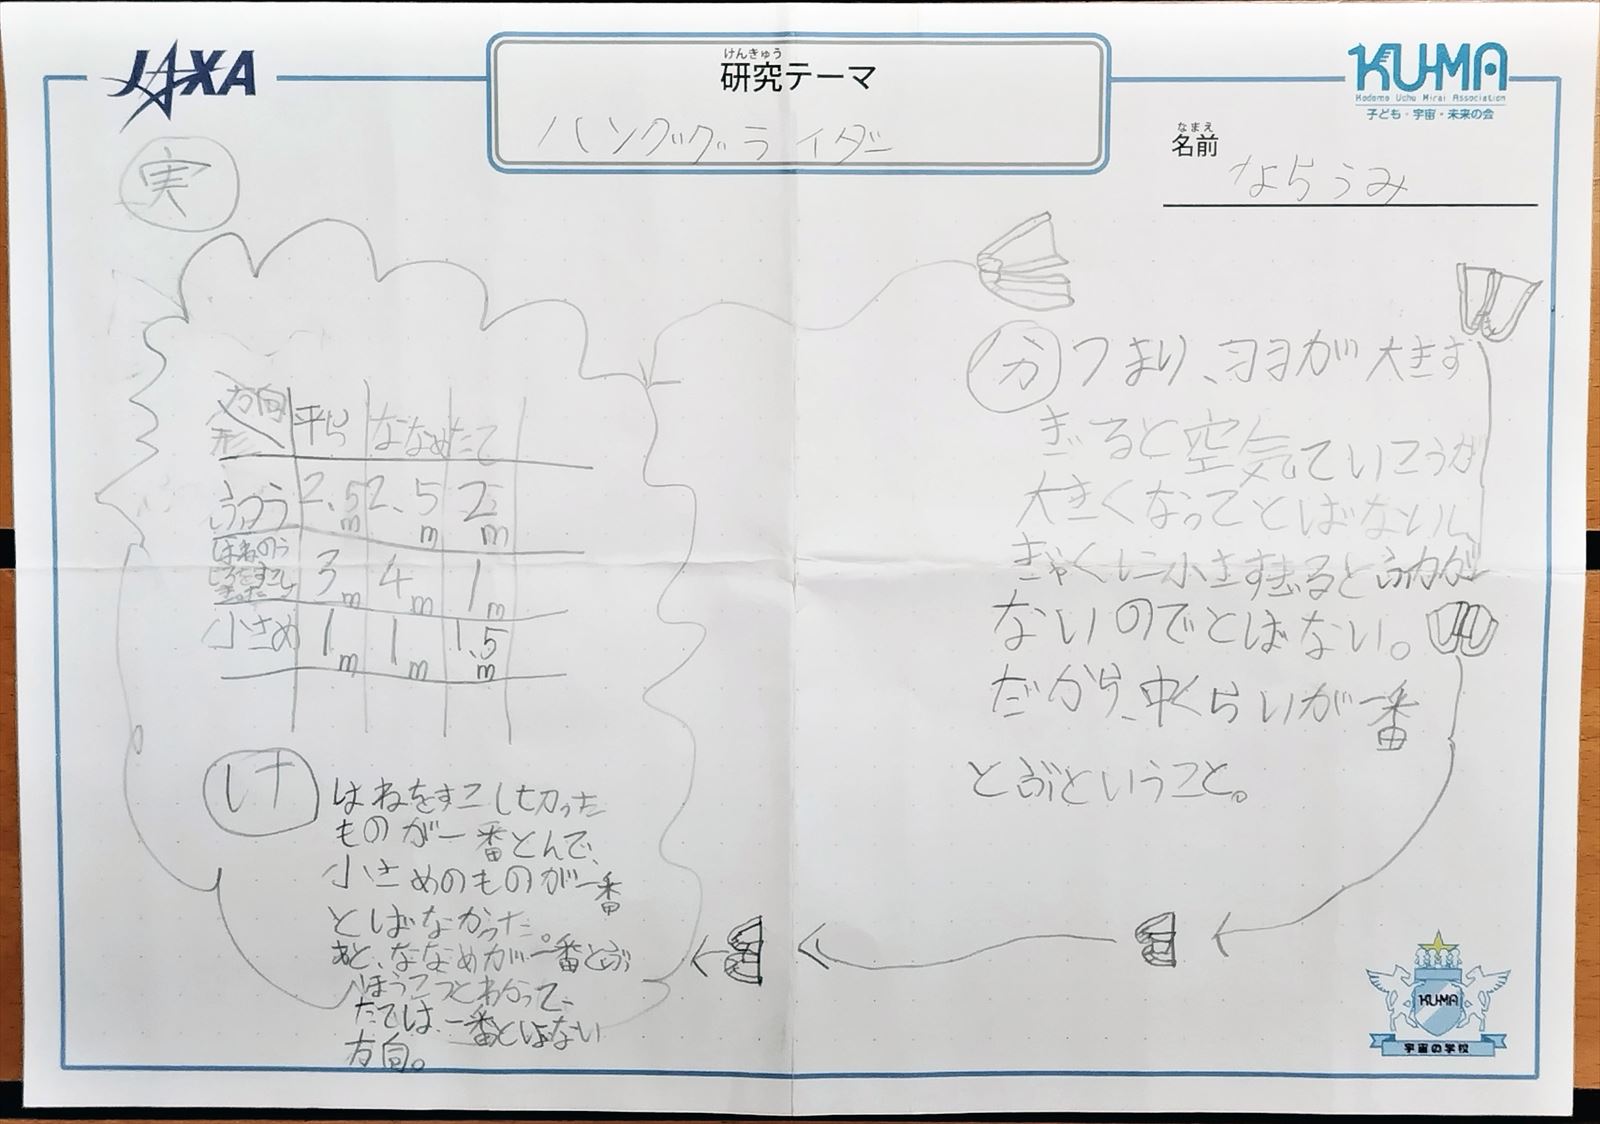 JAXA
けんきゅう
研究テーマ
ハンググライダー
KUMA
Kodomo Uchu Mirai Association
子ども・宇宙・未来の会
なまえ
名前
ならうみ
実
方向 平ら ななめ たて
形
ふつう 2.5m 2.5m 2m
はねのう
しろをすこし
3m 4m 1m
小さめ 1m 1m 1.5m
け
はねをすこし切った
ものが一番とんで、
小さめのものが一番
とばなかった。
あと、ななめが一番とぶ
ほうこうとわかって、
たては、一番とばない
方向。
分
つまり、ヨヨが大きす
ぎると空気ていこうが
大きくなってとばないし、
ぎゃくに小さすぎると ふ力が
ないのでとばない。
だから、中くらいが一番
とぶということ。
KUMA
宇宙の学校